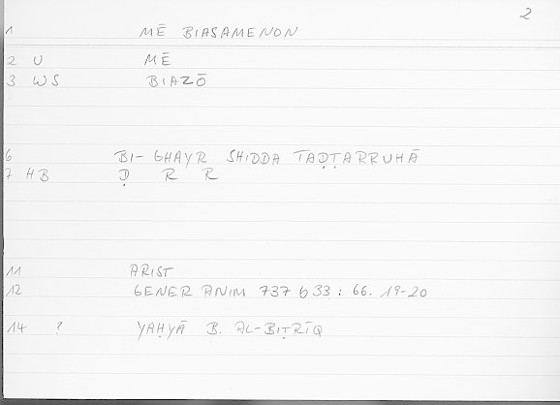 2
1 MĒ BIASAMENON
2 U MĒ
3 WS BIAZŌ
6 BI- GHAYR SHIDDA TAḌṬARRUHĀ
7 HB Ḍ R R
11 ARIST
12 GENER ANIM 737 b 33 : 66. 19-20
14 ? YAḤYĀ B. AL-BIṬRĪQ